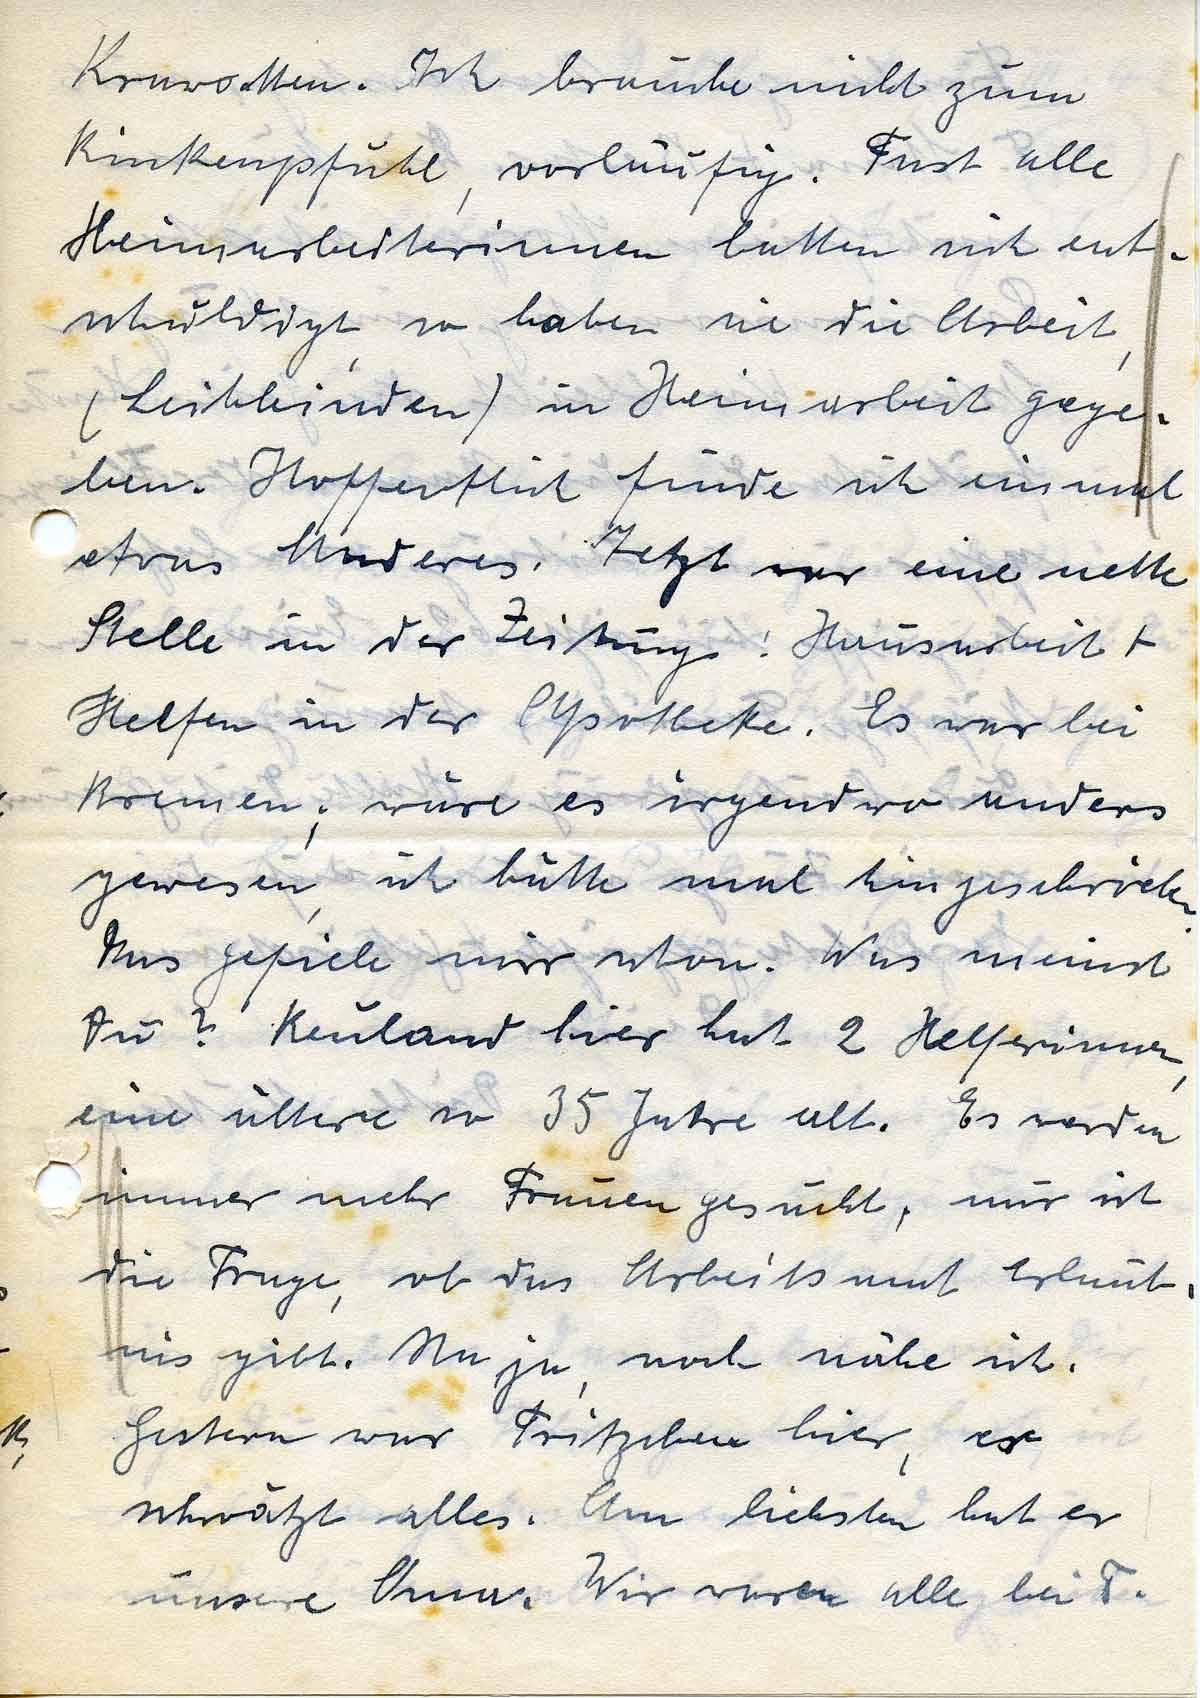 Krawatten. Ich brauche nicht zum
Rinkenpfuhl, vorläufig. Fast alle
Heimarbeiterinnen hatten sich ent-
schuldigt, so haben sie die Arbeit,
(Leibbinden) in Heimarbeit gege-
ben. Hoffentlich finde ich einmal
etwas Anderes. Jetzt war eine nette
Stelle in der Zeitung: Hausarbeit +
Helfen in der Apotheke. Es war bei
Bremen; wäre es irgendwo anders
gewesen, ich hätte mal hingeschrieben.
Das gefiele mir schon. Was meinst
Du? Reuland hier hat 2 Helferinnen,
eine ältere so 35 Jahre alt. Es werden
immer mehr Frauen gesucht, nur ist
die Frage, ob das Arbeitsamt Erlaub-
nis gibt. Na ja, noch nähe ich.
Gestern war Fritzchen hier, er
schwätzt alles. Am liebsten hat er
unsere Oma. Wir waren alle bei T.